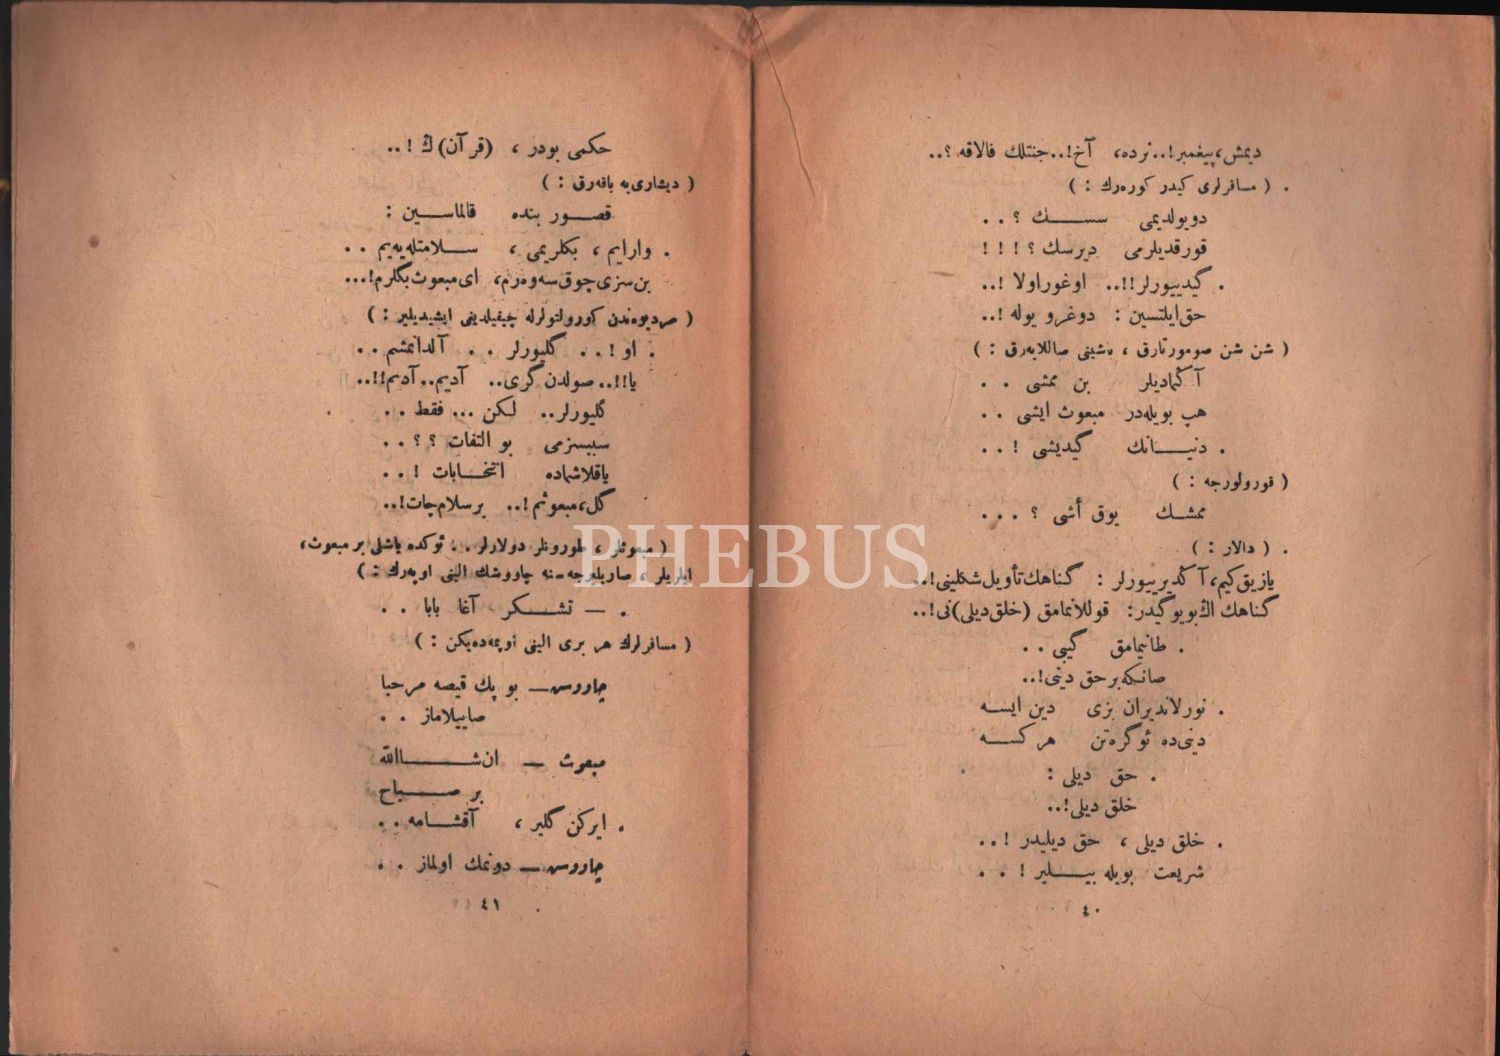 دیمش، پیغمبر!.. نرده، آخ!.. جنتلك فالاقه ؟..
( مسافرلری كیدر كوره‌رك : )
دویولدیمی سســـك ؟ . .
قورقدیلرمی دیرسك ؟ ! ! !
گیدییورلر!!.. اوغور اولا !..
حق ایلتسین : دوغرو یوله !..
( شن شن صومورتارق ، باشینی صاللایه‌رق : )
آڭمادیلر بن ممشی . .
هپ بویله‌در مبعوث ایشی . .
دنیـــانك گیدیشی ! . .
( قورولورجه : )
ممشـك یوق أشی ؟ . . .
( دالار : )
یازیق كیم، آڭدیرییورلر : گناهك تأویل شكلینی!..
گناهك اڭ بویوگیدر: قوللانمامق (خلق دیلی)نی!..
طانیمامق گیبی . .
صانكه بر حق دینی!..
نورلاندیران بزی دین ایســه
دینی‌ده ئوگره‌تن هر كســه
حق دیلی :
خلق دیلی!..
خلق دیلی ، حق دیلیدر !..
شریعت بویله بیـــلیر ! . .
٤٠
حكمی بودر ، (قرآن)ڭ !..
( دیشاری‌یه باقه‌رق : )
قصـــور بنده قالماســـین :
وارایم ، بكلریمی ، ســـلامتله‌یه‌یم . .
بن سزی چوق سه‌وه‌رم، ای مبعوث بكلرم!...
( مردیوه‌ندن كورولتولرله چیقیلدیغی ایشیدیلیر : )
او ! . . گلیورلر . . آلدانمشم . .
یا!!.. صولدن گری.. آدیم.. آدیم!!..
گلیورلر.. لیكن ... فقط . .
سببسزمی بو التفات ؟ ؟ . .
یاقلاشماده انتخـــابات ! . .
گل، مبعوثم!.. بر سلام چات!..
( مبعوثلر ، طورونلر دولارلر . . ئوكده یاشلی بر مبعوث،
ایلریلر ، صاریلیرجه‌سنه چاووشك الینی اوپه‌رك : )
— تشـــكر ، آغا بابا . .
( مسافرلرك هر بری الینی اوپمه‌ده‌یكن : )
چاووس — بو پك قیصه مرحبا
صاییلاماز . .
مبعوث — ان‌شـــــاالله
بر صـــباح
ایركن گلیر ، آقشـــامه . .
چاووس — دونمك اولماز . .
٤١
PHEBUS